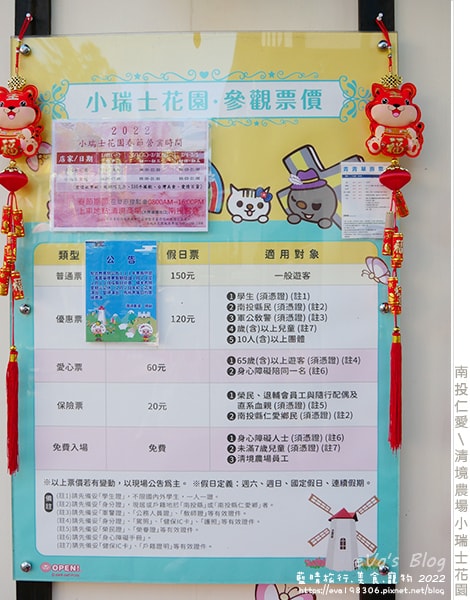 小瑞士花園·參觀票價
2022
小瑞士花園春節營業時間
店家/日期
公告
類型
假日票
適用對象
普通票
150元
一般遊客
優惠票
120元
❶學生 (須憑證) (註1)
❷南投縣民 (須憑證) (註2)
❸軍公教警 (須憑證) (註3)
歲(含)以上兒童 (註7)
❺10人(含)以上團體
愛心票
60元
❶65歲(含)以上遊客 (須憑證) (註4)
❷身心障礙陪同一名 (註6)
保險票
20元
❶榮民、退輔會員工與隨行配偶及
直系血親 (須憑證) (註5)
❷南投縣仁愛鄉民 (須憑證) (註2)
免費入場
免費
❶身心障礙人士 (須憑證) (註6)
❷未滿7歲兒童 (須憑證) (註7)
❸清境農場員工
※以上票價若有變動，以現場公告為主。 ※假日定義：週六、週日、國定假日、連續假期。
備註
(註1)請先備妥「學生證」，不限國內外學生，一人一證。
(註2)請先備妥「身分證」，現居或戶籍地於「南投縣」或「南投縣仁愛鄉」者。
(註3)請先備妥「軍警證」、「公務人員證」、「教師證」等有效證件。
(註4)請先備妥「身分證」、「駕照」、「健保IC卡」、「護照」等有效證件。
(註5)請先備妥「榮民證」、「榮眷證」等有效證件。
(註6)請先備妥「身心障礙手冊」。
(註7)請先備妥「健保IC卡」、「戶籍證明」等有效證件。
OPEN!
eva's Blog
藍晴旅行.美食.寵物 2022
https://eva198306.pixnet.net/blog
南投仁愛\清境農場小瑞士花園